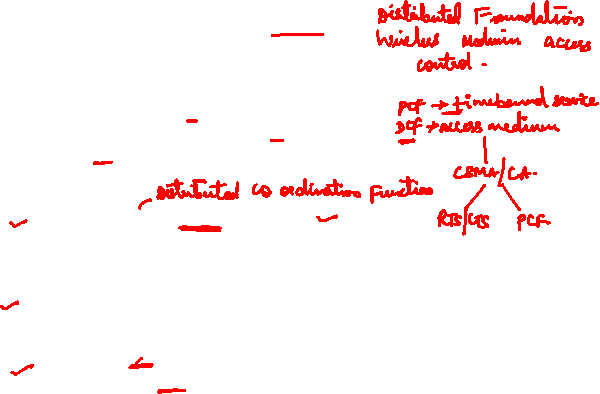 Distributed Foundation
Wireless Medium access
control.
PCF → timebound service
DCF → access medium
CSMA/CA.
Distributed co ordination Function
RTS/CTS PCF